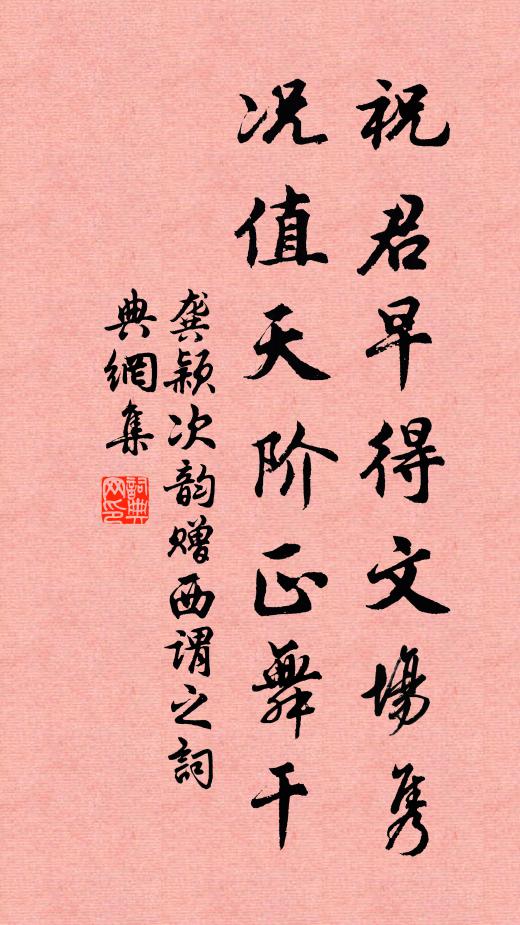 祝君早得文場隽
况值天阶正舞干
龚颖次韵赠西谓之詞
典網集
詞典网印